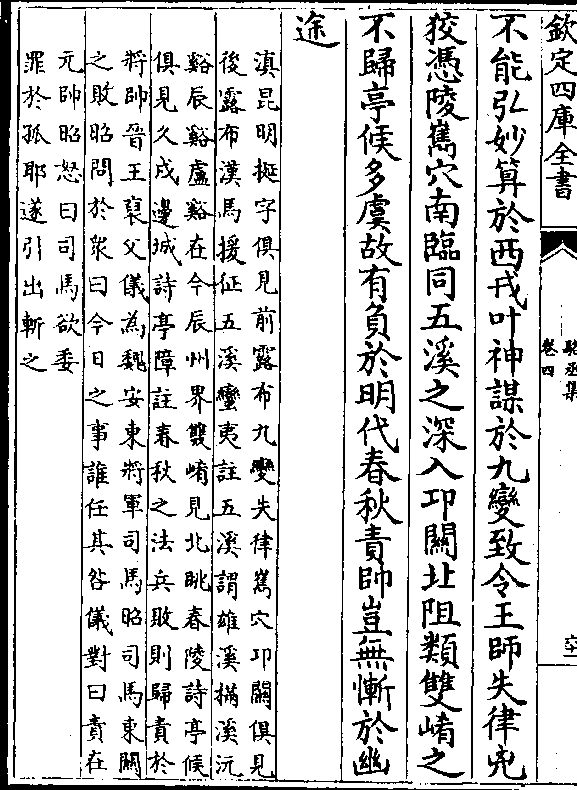 欽定四庫全書
駱丞集
卷四
不能弘妙算於西戎叶神謀於九變致令王師失律兇
狡憑陵嶲穴南臨同五溪之深入卭關北阻類雙崤之
不歸亭候多虞故有負於明代春秋責帥豈無慚於幽
途
滇昆明挻字俱見前露布九變失律嶲穴卭關俱見
後露布漢馬援征五溪蠻夷註五溪謂雄溪樠溪沅
谿辰谿盧谿在今辰州界雙崤見北眺舂陵詩亭候
俱見久戍邊城詩亭障註春秋之法兵敗則歸責於
將帥晉王裒父儀為魏安東將軍司馬昭司馬東關
之敗昭問於衆曰今日之事誰任其咎儀對曰責在
元帥昭怒曰司馬欲委
罪於孤耶遂引出斬之